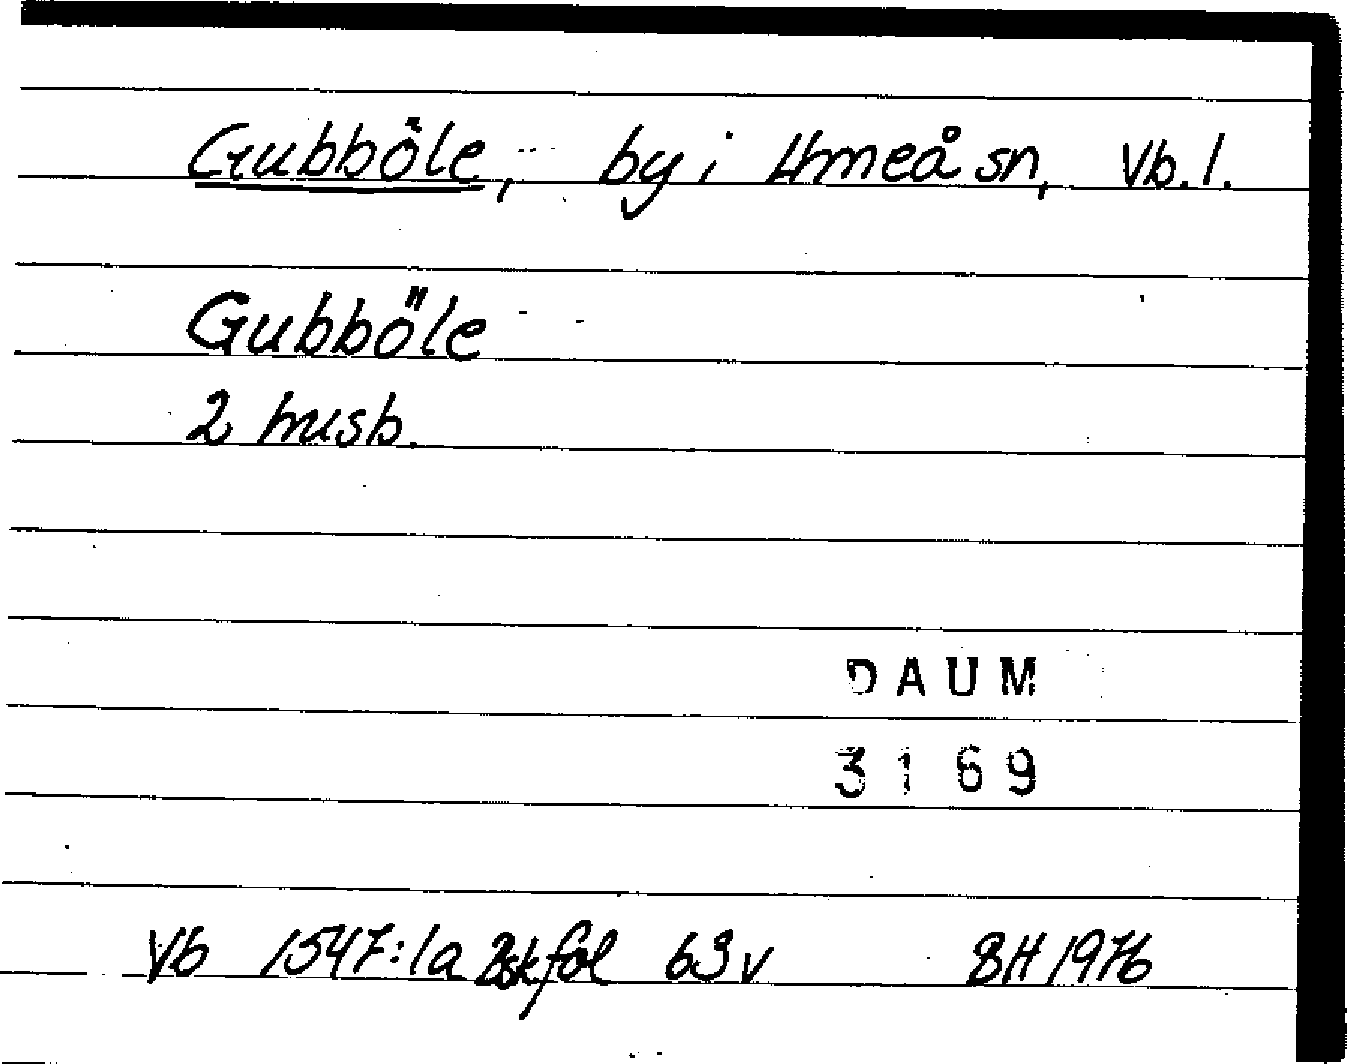 Gubböle, by i Umeå sn, Vb. l.
Gubböle
2 husb.
DAUM
3169
Vb 1547:1a Bsk fol 63 v BH 1976